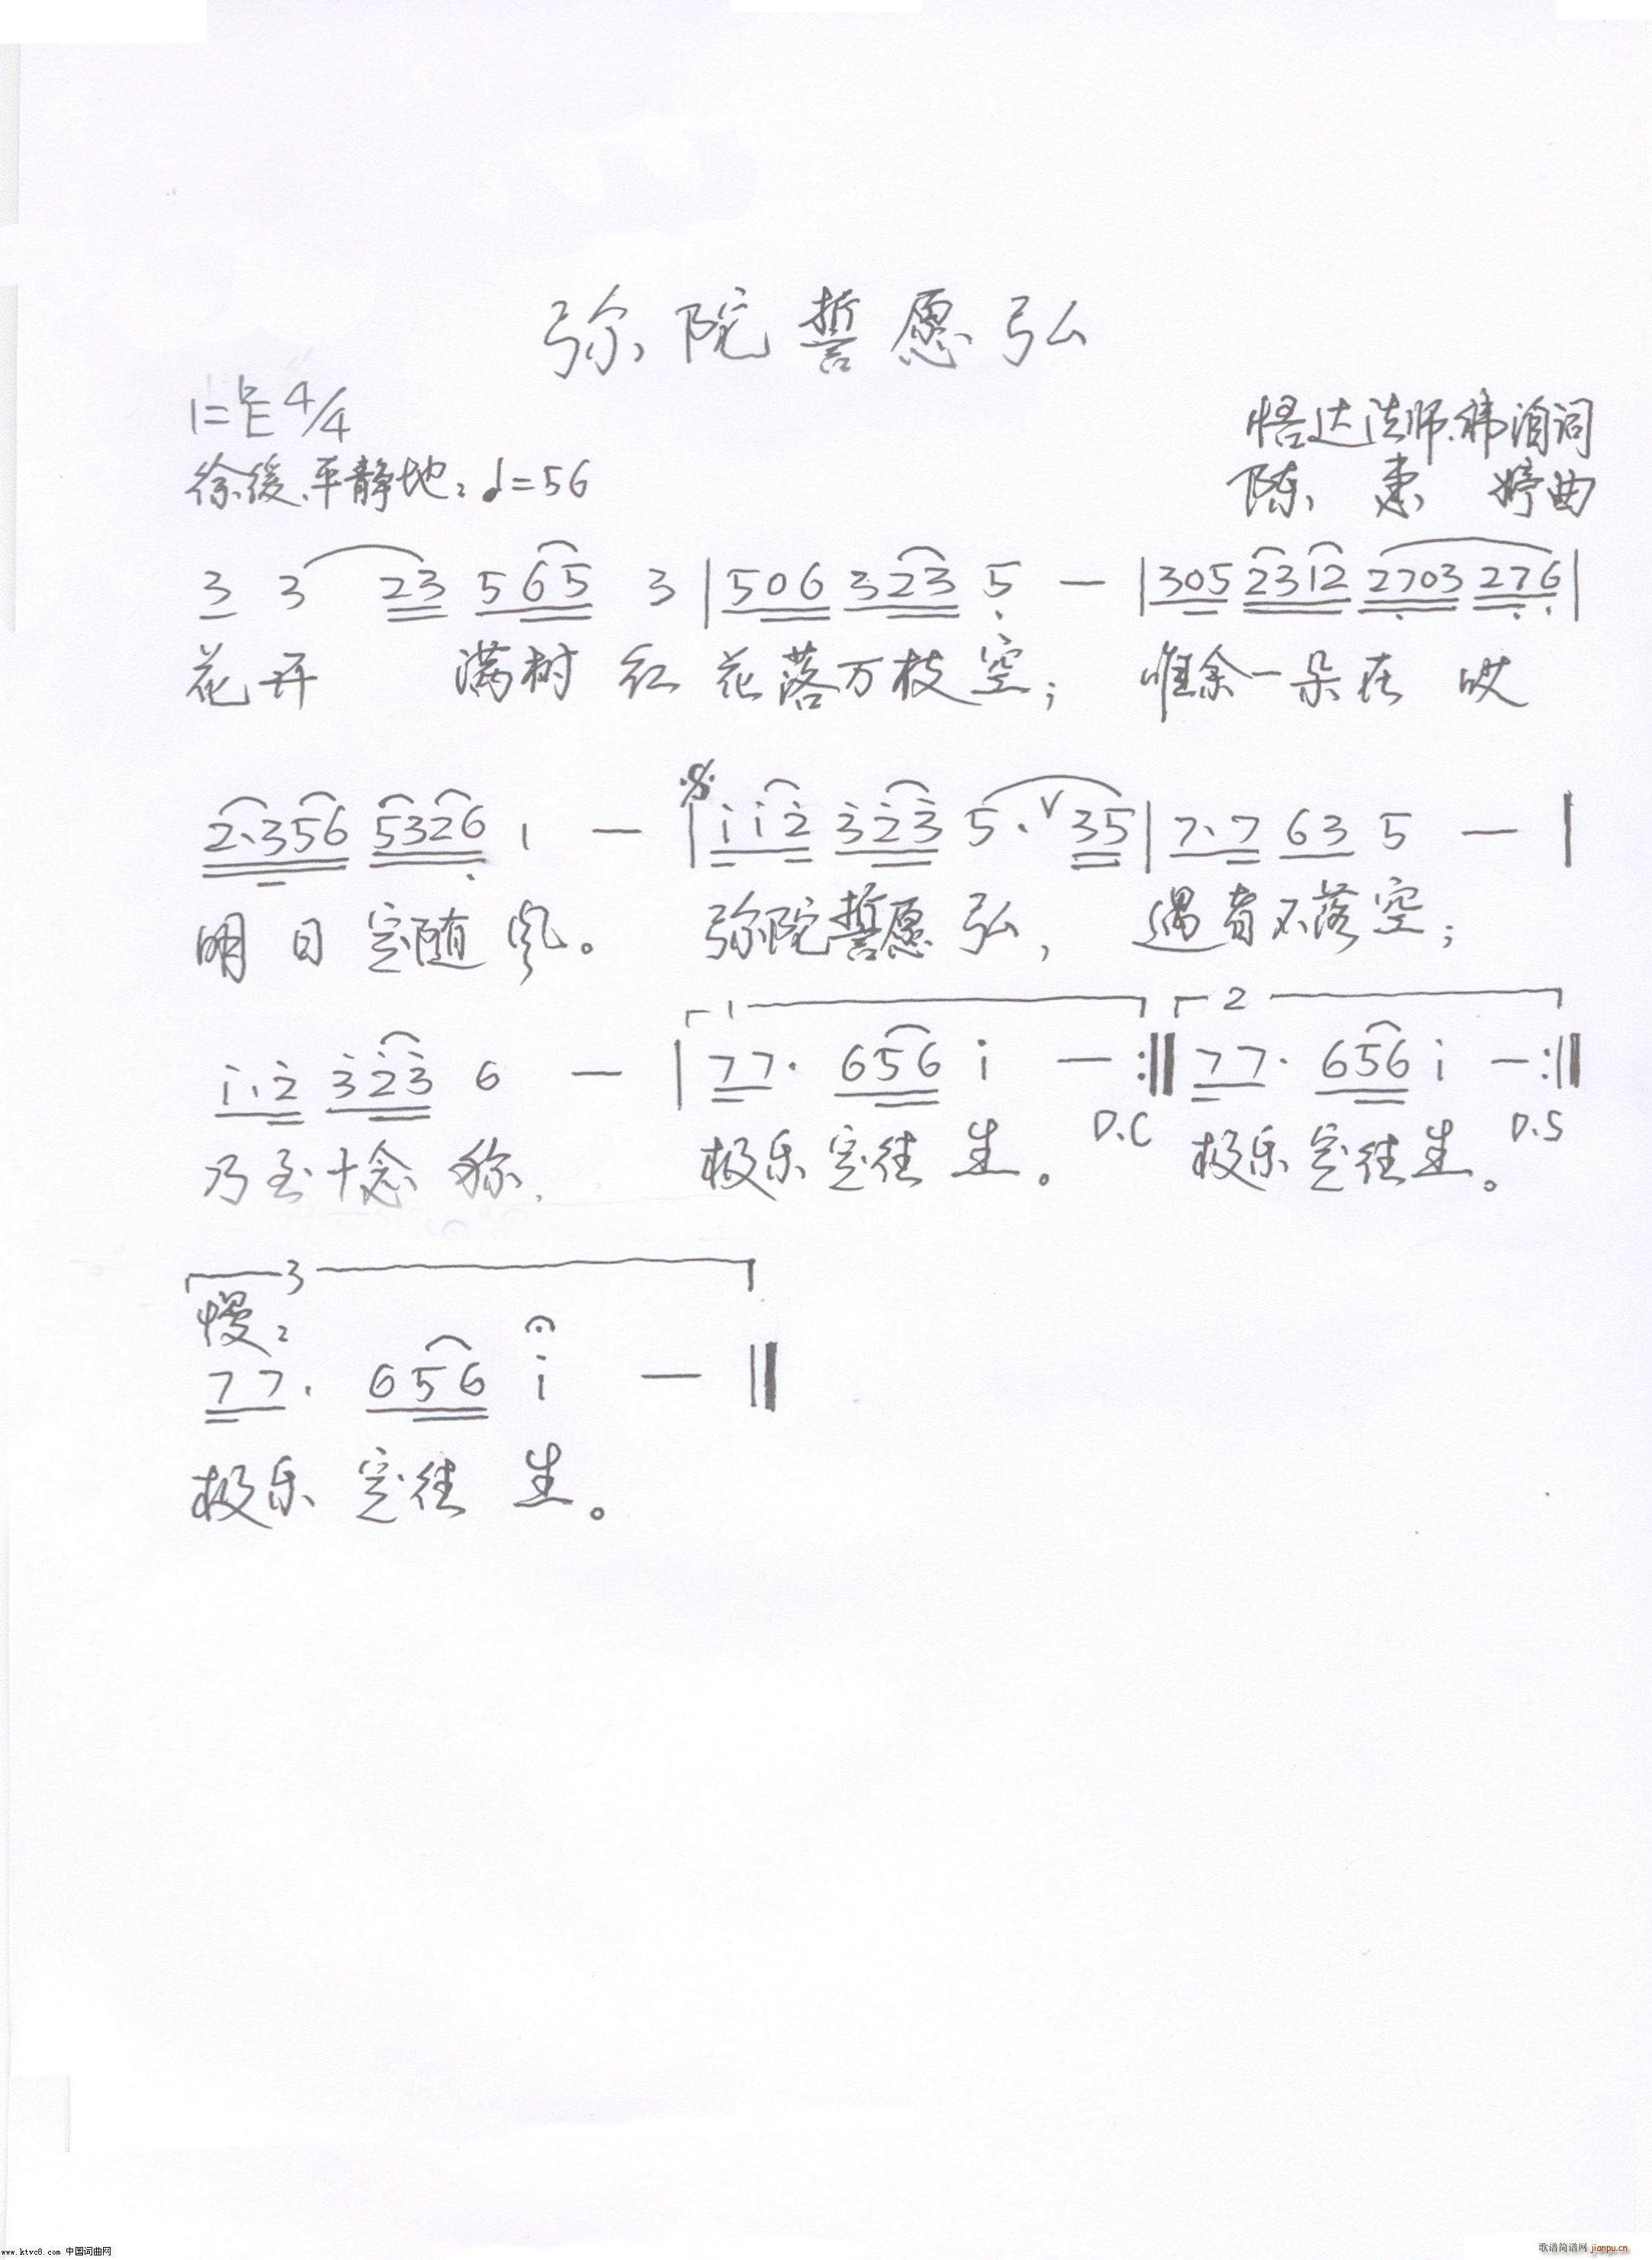 弥陀誓愿弘
1=♭E 4/4
悟达法师、祎洎词
徐缓、平静地: ♩=56
陈 肃 婷曲
3 3 23 565 3 | 506 323 5 — | 305 2312 2703 276 |
花开 满树 红 花落万枝空； 唯余一朵在 哎
2·356 5326 1 — | i i 2 3 2 3 5· V 35 | 7·7 63 5 — |
明日定随风。 弥陀誓愿弘， 遇者不落空；
i·2 323 6 — | 1 77· 656 i — :‖ 2 77· 656 i — :‖
D.C D.S
乃至十念称， 极乐定往生。 极乐定往生。
3
慢:
77· 656 i — ‖
极乐 定往 生。
www.ktvc8.com 中国词曲网
歌谱简谱网 jianpu.cn